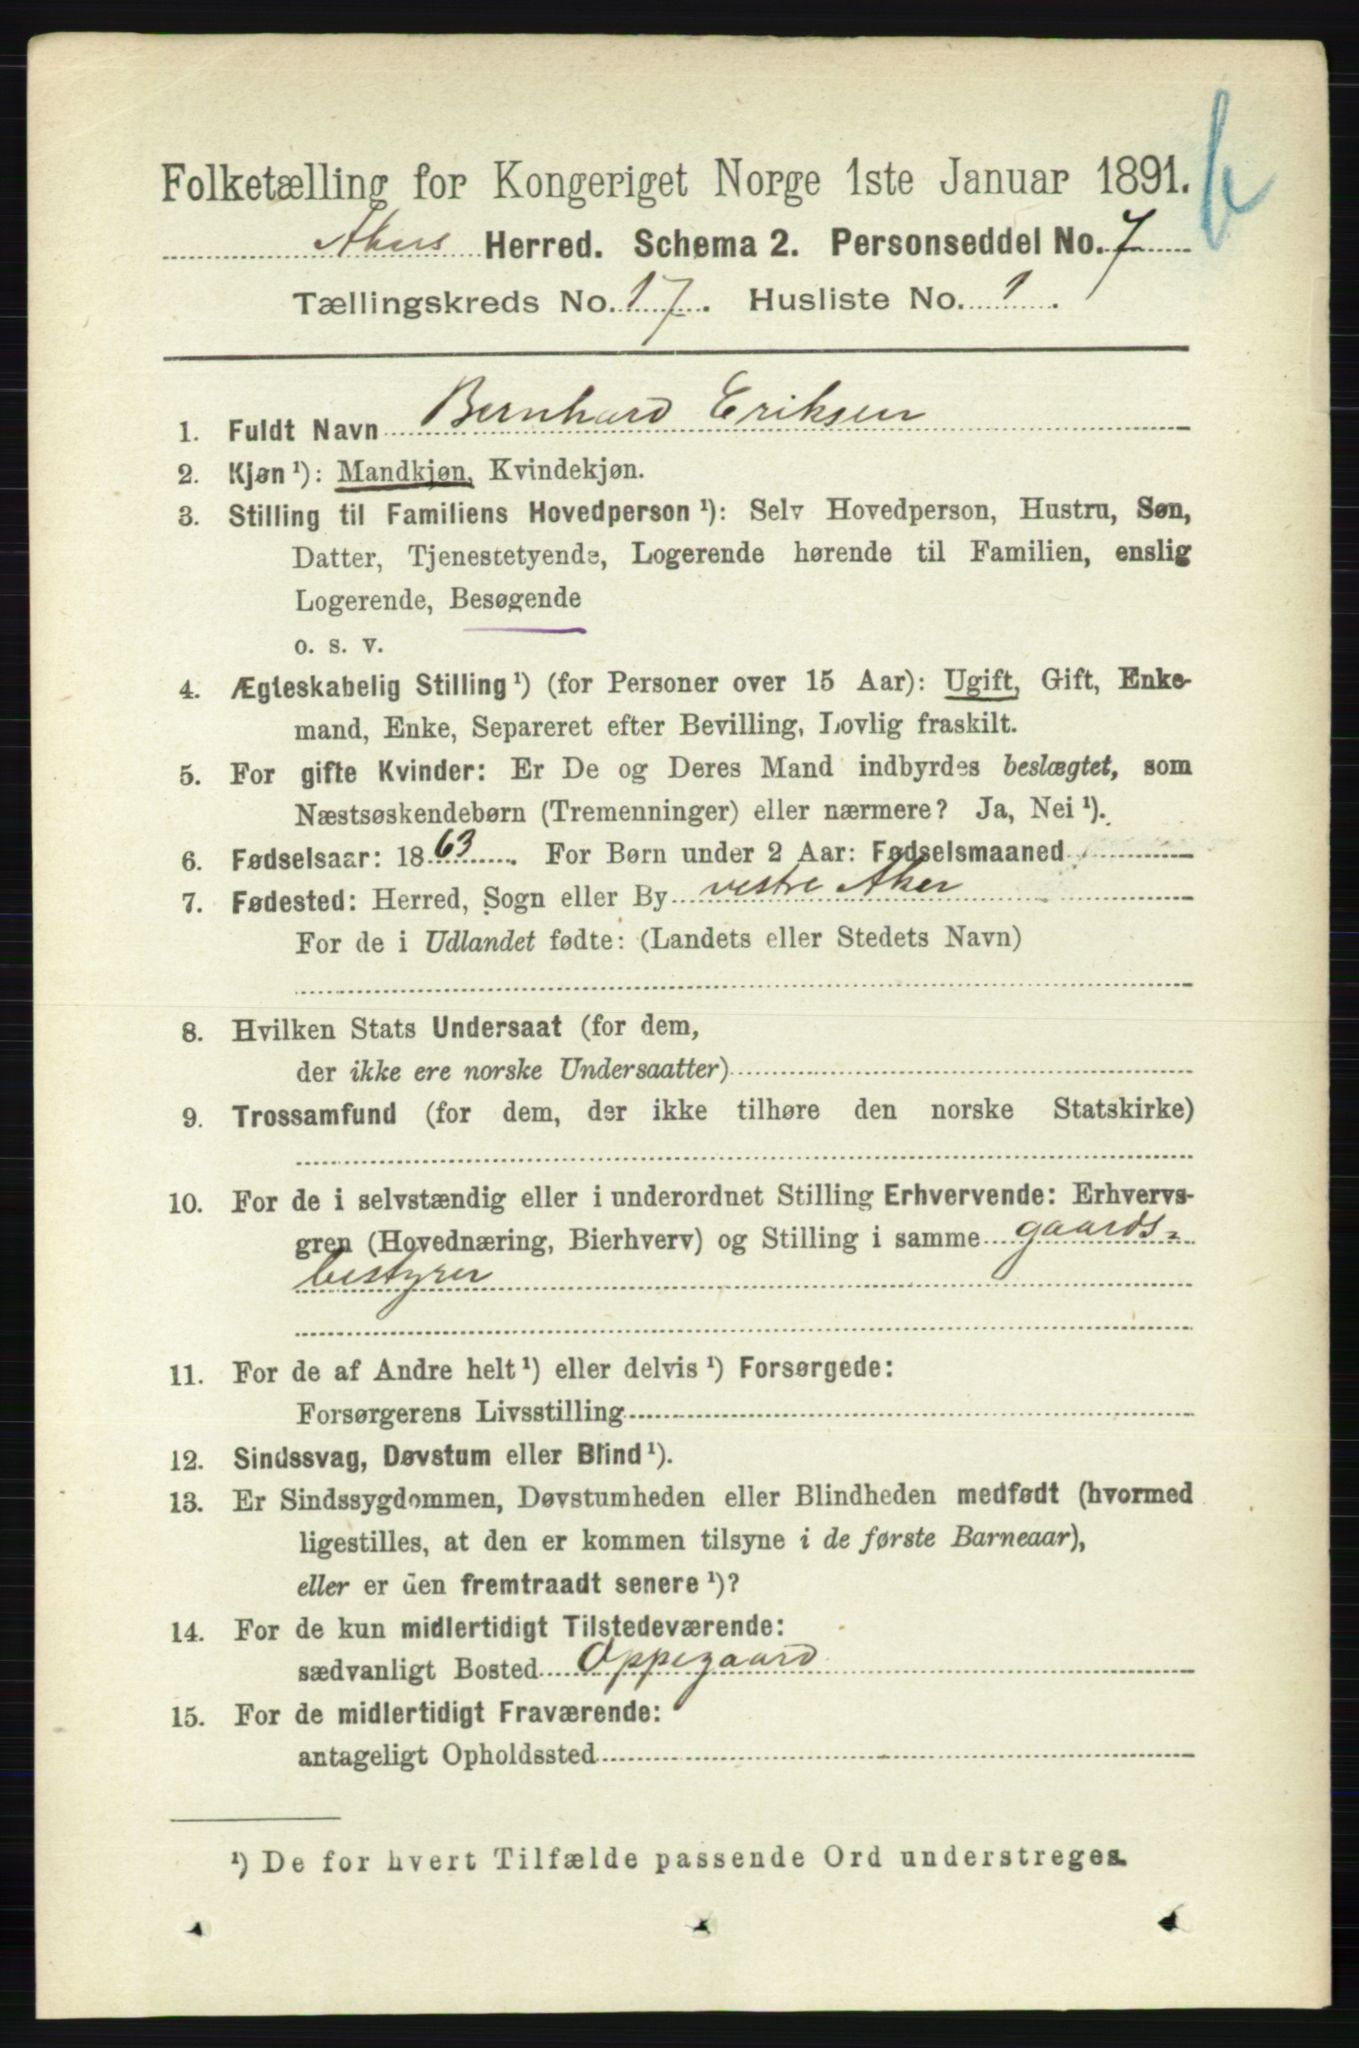 b
Folketælling for Kongeriget Norge 1ste Januar 1891.
Akers Herred. Schema 2. Personseddel No. 7
Tællingskreds No. 17. Husliste No. 1.
1. Fuldt Navn Bernhard Eriksen
2. Kjøn¹): Mandkjøn, Kvindekjøn.
3. Stilling til Familiens Hovedperson¹): Selv Hovedperson, Hustru, Søn,
Datter, Tjenestetyende, Logerende hørende til Familien, enslig
Logerende, Besøgende
o. s. v.
4. Ægteskabelig Stilling¹) (for Personer over 15 Aar): Ugift, Gift, Enke-
mand, Enke, Separeret efter Bevilling, Lovlig fraskilt.
5. For gifte Kvinder: Er De og Deres Mand indbyrdes beslægtet, som
Næstsøskendebørn (Tremenninger) eller nærmere? Ja, Nei¹).
6. Fødselsaar: 1863. For Børn under 2 Aar: Fødselsmaaned
7. Fødested: Herred, Sogn eller By vestre Aker
For de i Udlandet fødte: (Landets eller Stedets Navn)
8. Hvilken Stats Undersaat (for dem,
der ikke ere norske Undersaatter)
9. Trossamfund (for dem, der ikke tilhøre den norske Statskirke)
10. For de i selvstændig eller i underordnet Stilling Erhvervende: Erhvervs-
gren (Hovednæring, Bierhverv) og Stilling i samme gaards-
bestyrer
11. For de af Andre helt¹) eller delvis¹) Forsørgede:
Forsørgerens Livsstilling
12. Sindssvag, Døvstum eller Blind¹).
13. Er Sindssygdommen, Døvstumheden eller Blindheden medfødt (hvormed
ligestilles, at den er kommen tilsyne i de første Barneaar),
eller er den fremtraadt senere¹)?
14. For de kun midlertidigt Tilstedeværende:
sædvanligt Bosted Oppegaard
15. For de midlertidigt Fraværende:
antageligt Opholdssted
¹) De for hvert Tilfælde passende Ord understreges.